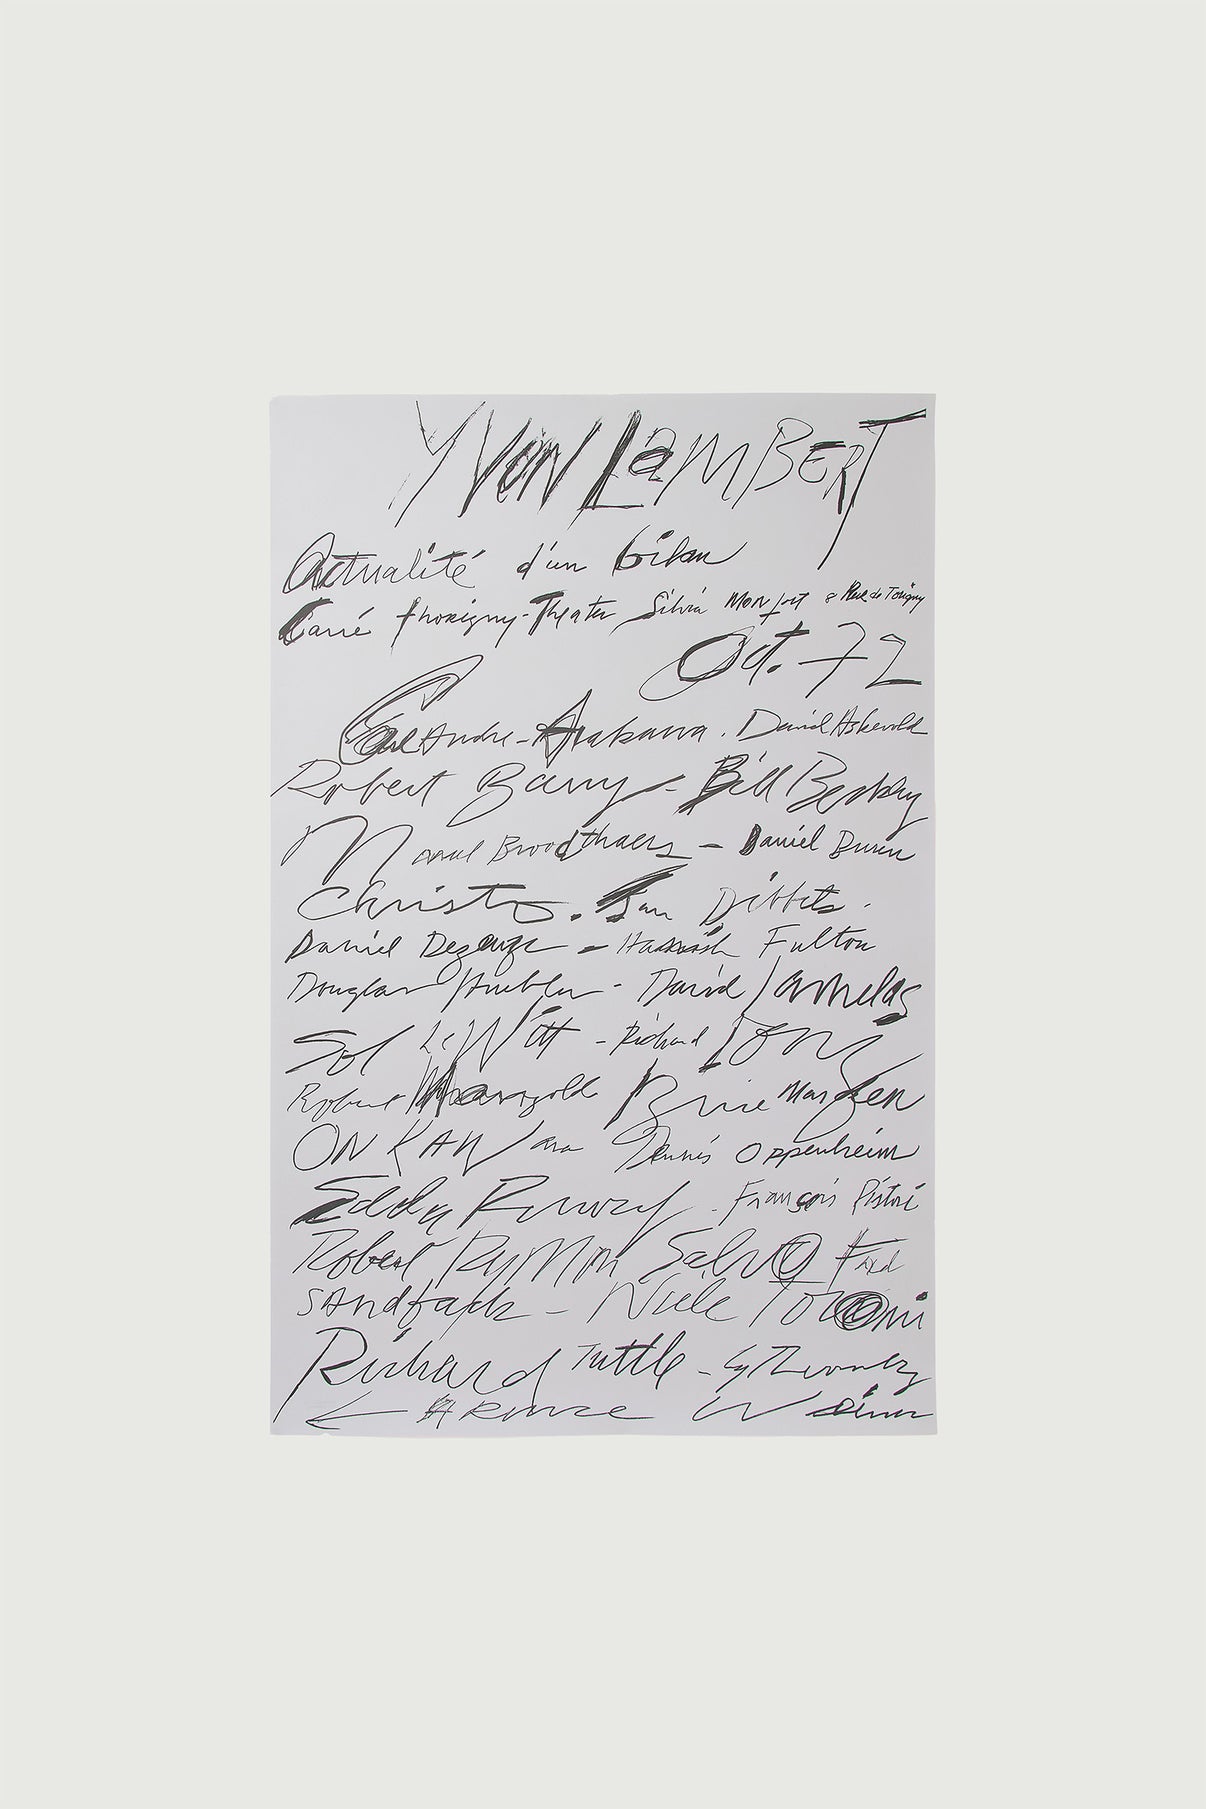 YVON LAMBERT
Actualité d'un bilan
Carré Thorigny-Theater Silvia Monfort 8 Rue de Torigny
Oct. 72
Carl Andre - Arakawa . David Askevold
Robert Barry - Bill Beckley
Marcel Broodthaers - Daniel Buren
Christo . Jan Dibbets .
Daniel Dezeuze - Hamish Fulton
Douglas Huebler - David Lamelas
Sol LeWitt - Richard Long
Robert Mangold Brice Marden
ON KAWara Dennis Oppenheim
Edda Renouf . François Ristori
Robert Ryman Salvo Fred
SAndback - Niele Toroni
Richard Tuttle - Cy Twombly
LAWRence Weiner